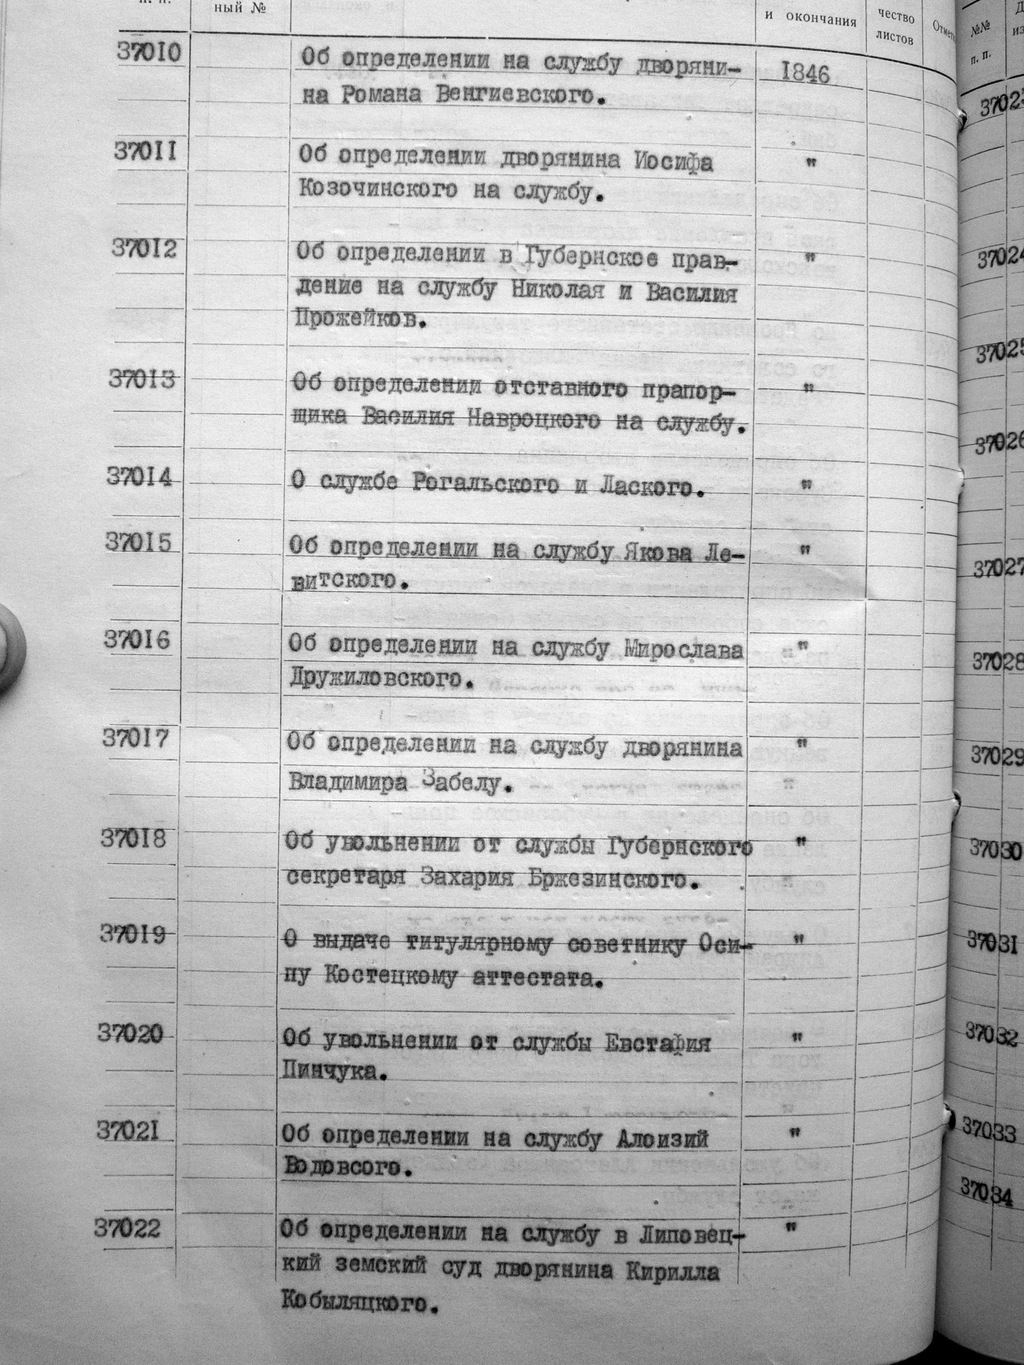 ный №
и окончания
чество
листов
№№
п. п.
37010 Об определении на службу дворяни- 1846
на Романа Венгиевского.
37011 Об определении дворянина Иосифа "
Козочинского на службу.
37012 Об определении в Губернское прав- "
дение на службу Николая и Василия
Прожейков.
37013 Об определении отставного прапор- "
щика Василия Навроцкого на службу.
37014 О службе Рогальского и Лаского. "
37015 Об определении на службу Якова Ле- "
витского.
37016 Об определении на службу Мирослава "
Дружиловского.
37017 Об определении на службу дворянина "
Владимира Забелу.
37018 Об увольнении от службы Губернского "
секретаря Захария Бржезинского.
37019 О выдаче титулярному советнику Оси- "
пу Костецкому аттестата.
37020 Об увольнении от службы Евстафия "
Пинчука.
37021 Об определении на службу Алоизий "
Водовсого.
37022 Об определении на службу в Липовец- "
кий земский суд дворянина Кирилла
Кобыляцкого.
37023
37024
37025
37026
37027
37028
37029
37030
37031
37032
37033
37034